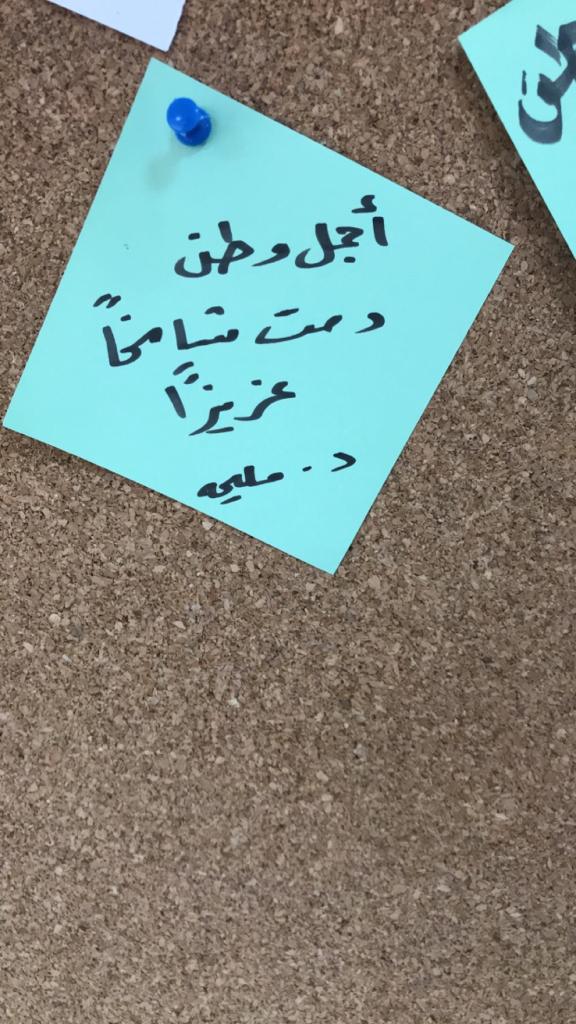 أجمل وطن
دمت شامخاً
عزيزاً
د. مليحه